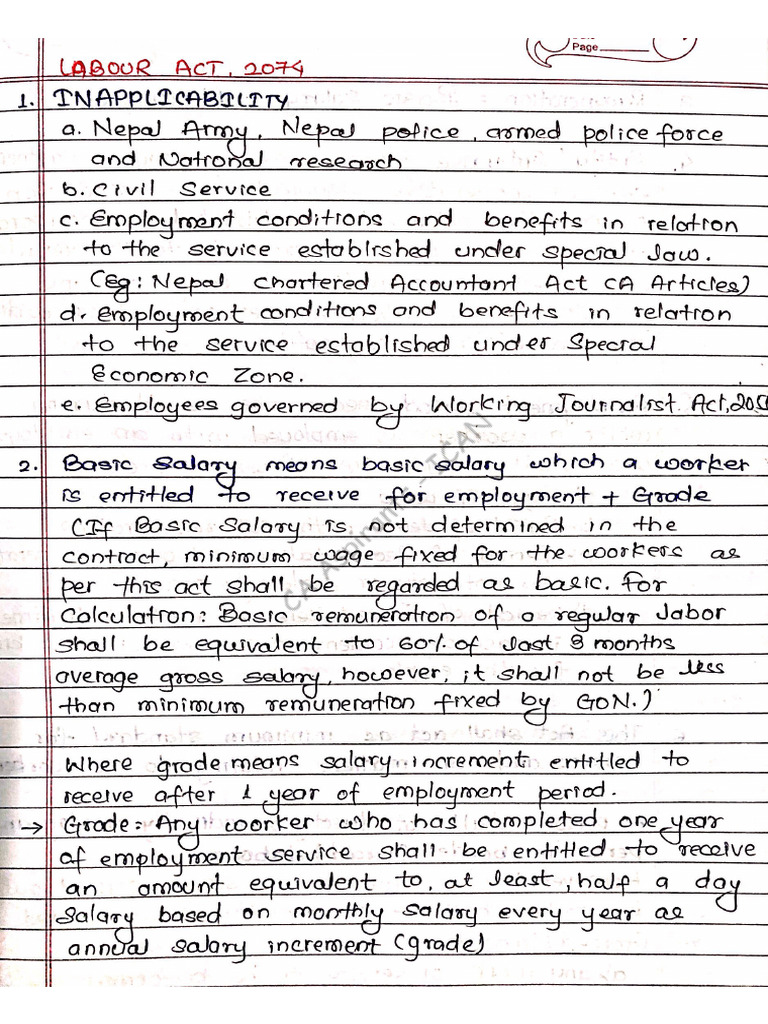 Page
LABOUR ACT, 2074
1. INAPPLICABILITY
a. Nepal Army, Nepal police, armed police force
and National research
b. Civil Service
c. Employment conditions and benefits in relation
to the service established under special law.
(Eg: Nepal Chartered Accountant Act CA Articles)
d. Employment conditions and benefits in relation
to the service established under Special
Economic Zone.
e. Employees governed by Working Journalist Act,
2. Basic Salary means basic salary which a worker
is entitled to receive for employment + Grade
(If Basic Salary is not determined in the
contract, minimum wage fixed for the workers as
per this act shall be regarded as basic. For
Calculation: Basic remuneration of a regular labor
shall be equivalent to 60% of last months
average gross salary, however, it shall not be less
than minimum remuneration fixed by GON.)
Where grade means salary increment entitled to
receive after 1 year of employment period.
→ Grade: Any worker who has completed one year
of employment service shall be entitled to receive
an amount equivalent to, at least, half a day
salary based on monthly salary every year as
annual salary increment (grade)
CA Aspirants - ICAN